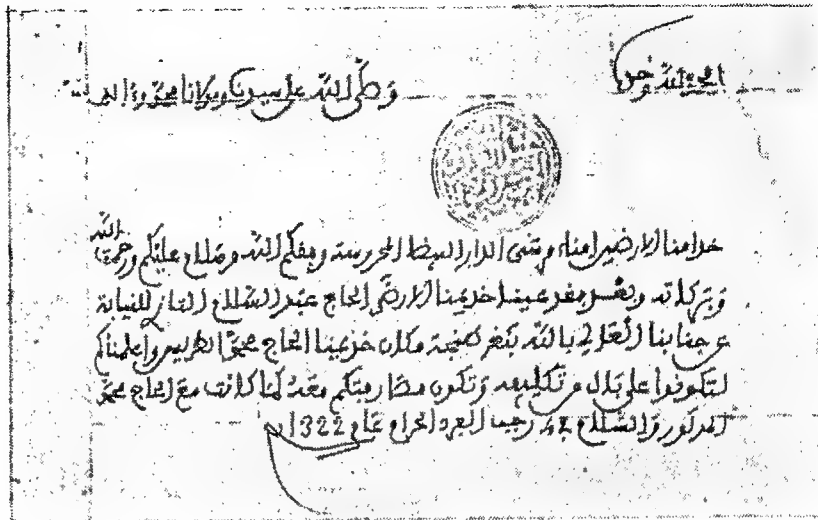 الحمد لله وحده
وصلى الله على سيدنا ومولانا محمد وآله
خدامنا الارضين امناء مرسى الدار البيضا المحروسة وفقكم الله وسلام عليكم ورحمت الله
وبركاته وبعد فقد عينا خديمنا الارضى الحاج عبد السلام التاز للنيابة
عن جنابنا العالي بالله بثغر طنجة مكان خديمنا الحاج محمد الطريس واعلمناكم
لتكونوا على بال من تكليفه وتكون معه كما كانت مع الحاج محمد
المذكور والسلام في رجب الفرد الحرام عام 1322